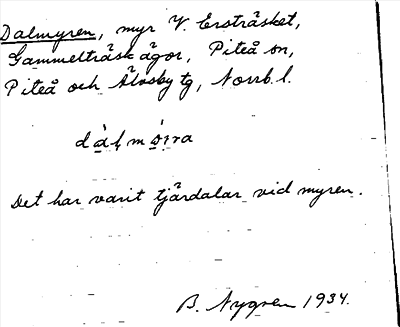 Dalmyren, myr V. Ersträsket,
Gammelträsk ägor, Piteå sn,
Piteå och Älvsby tg, Norrb. l.
Det har varit tjärdalar vid myren.
B. Nygren 1934.